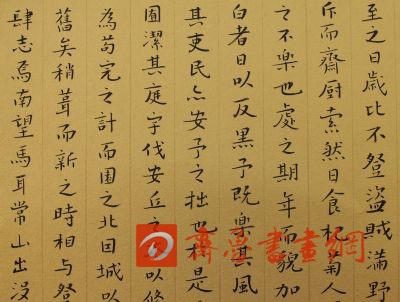 至之日歲比不登盜賊滿野
斥而齋廚索然日食杞菊人
之不樂也處之期年而貌加
白者日以反黑予既樂其風
其吏民亦安予之拙也於是
囿潔其庭宇伐安丘之木以修
為苟完之計而園之北因城以
舊矣稍葺而新之時相與登
肆志焉南望馬耳常山出没
齊魯書畫網